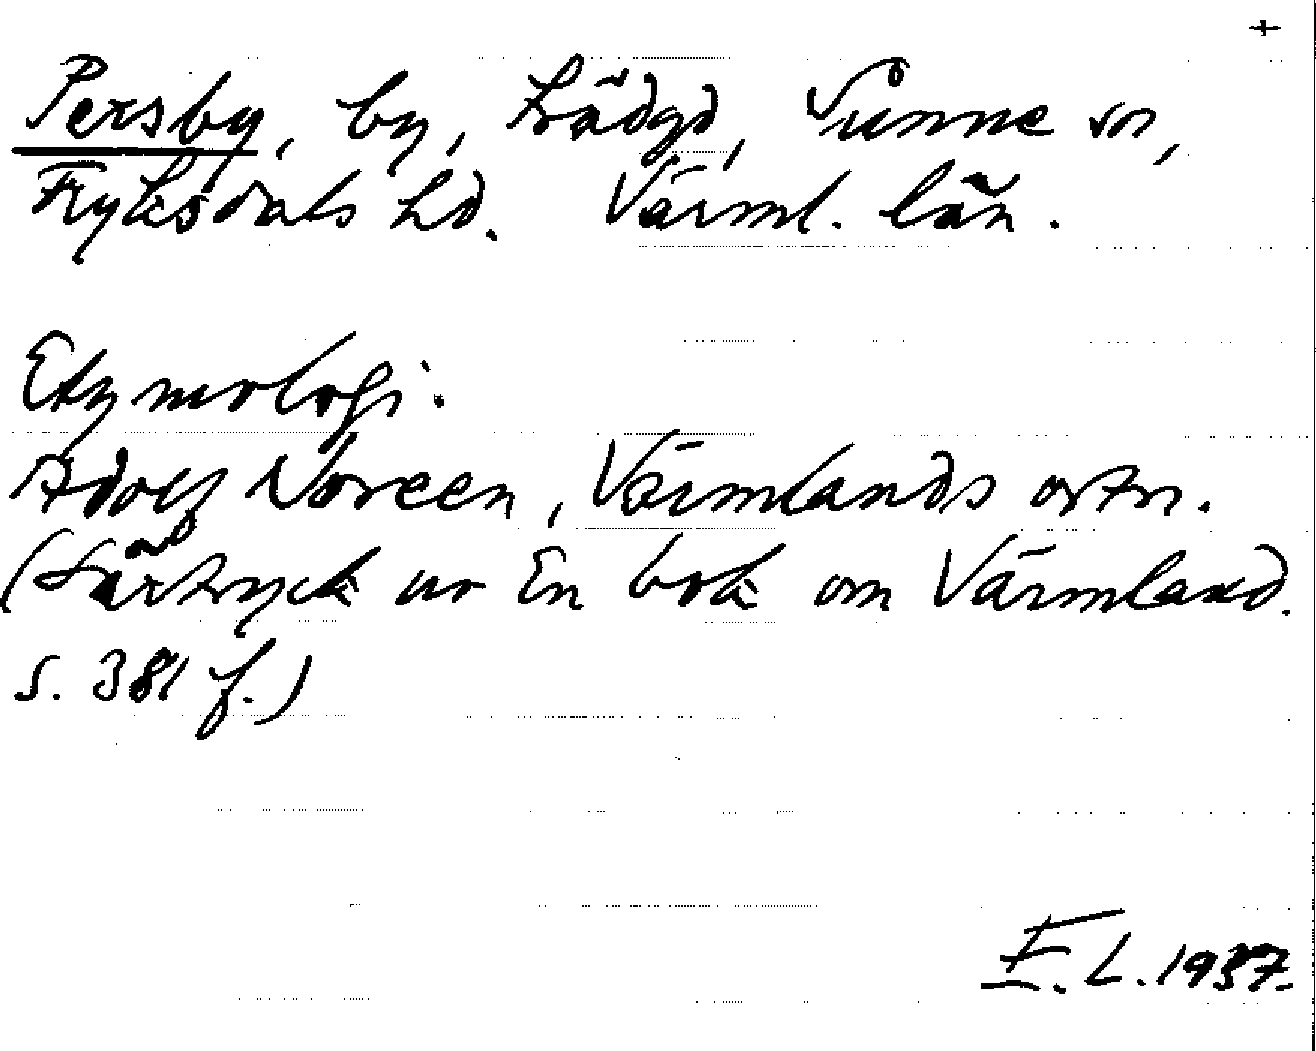 +
Persby, by, trädgd, Sunne sn,
Fryksdals hd. Värml. län.
Etymologi:
Adolf Noreen, Värmlands ortn.
(Särtryck ur En bok om Värmland.
s. 381 f.)
E. L. 1937.